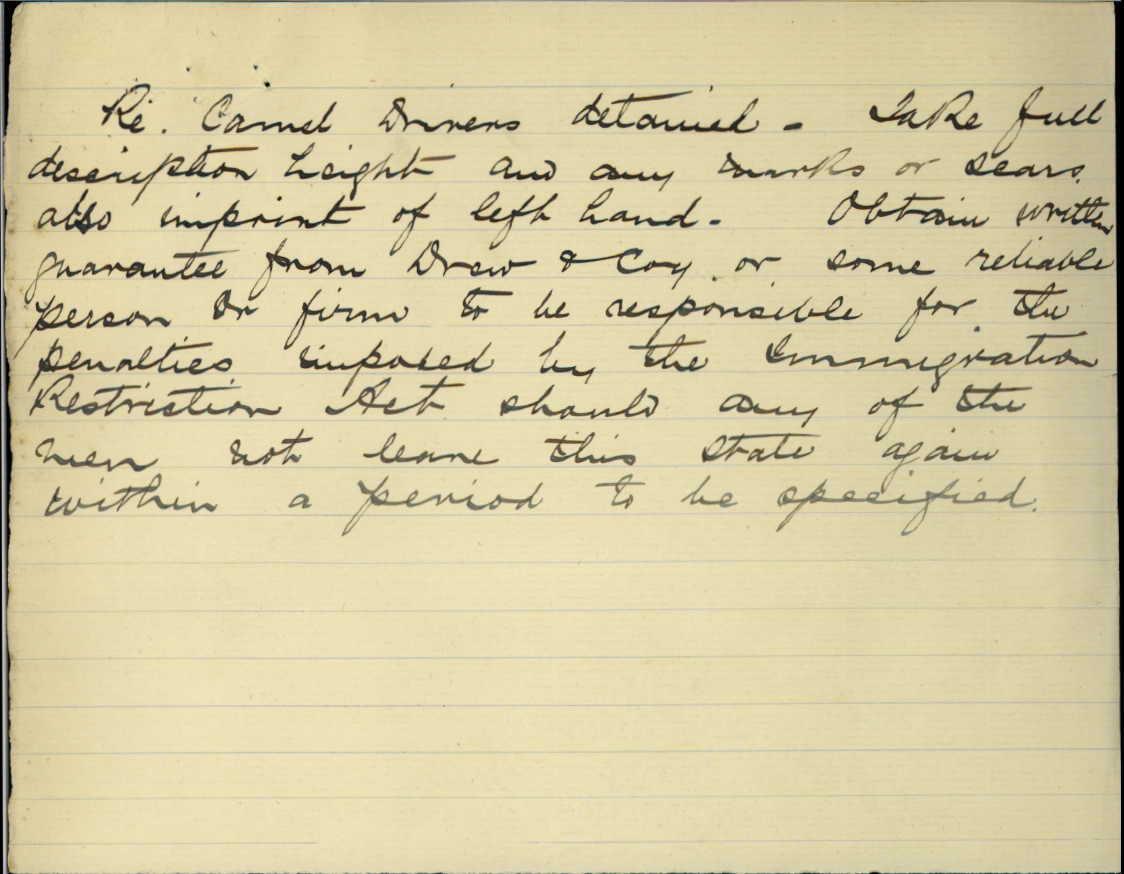 Re. Camel Drivers detained - Take full
description height and any marks or scars.
also imprint of left hand. Obtain written
guarantee from Drew & Coy. or some reliable
person or firm to be responsible for the
penalties imposed by the Immigration
Restriction Act should any of the
men not leave this state again
within a period to be specified.